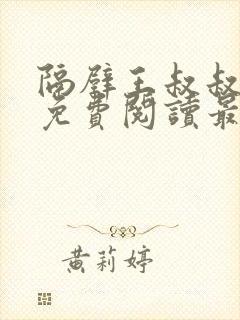 隔壁王叔叔
免費閱讀最
黃莉婷